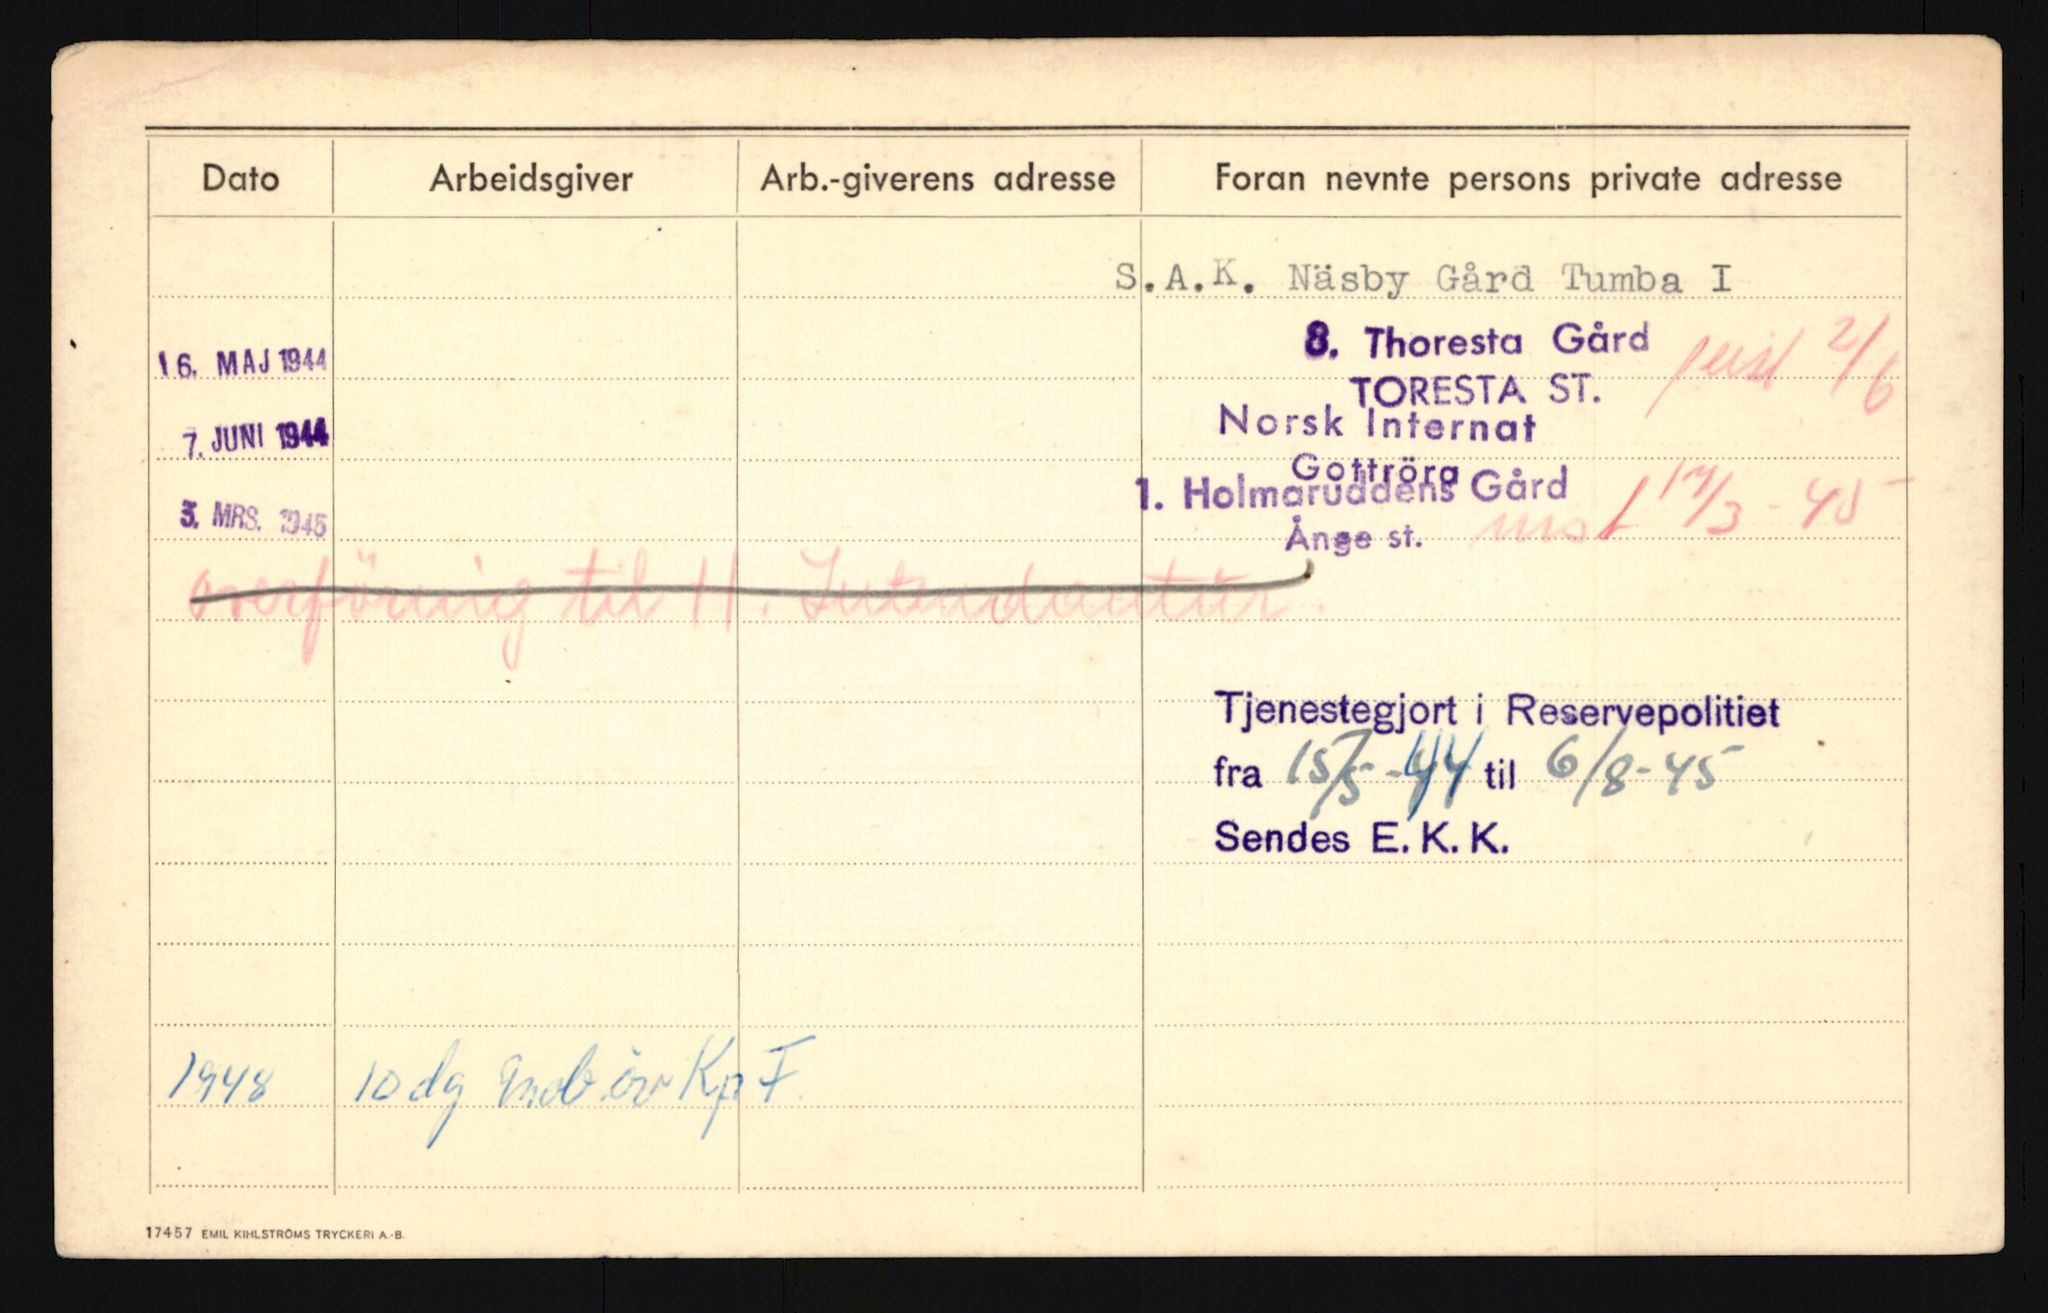 Dato Arbeidsgiver Arb.-giverens adresse Foran nevnte persons private adresse
S.A.K. Näsby Gård Tumba I
16. MAJ 1944 8. Thoresta Gård 2/6
TORESTA ST.
7. JUNI 1944 Norsk Internat
Gottröra
3. MRS. 1945 1. Holmaruddens Gård 17/3-45
Ånge st.
overföring til H. Intendantur.
Tjenestegjort i Reservepolitiet
fra 15/5-44 til 6/8-45
Sendes E.K.K.
1948 10 dg mob.öv Kp F.
17457 EMIL KIHLSTRÖMS TRYCKERI A.-B.